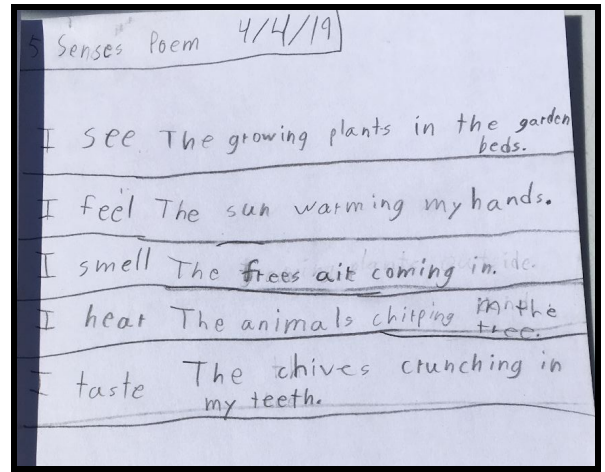 5 Senses Poem 4/4/19
I see The growing plants in the garden
beds.
I feel The sun warming my hands.
I smell The frees air coming in.
I hear The animals chirping in the
tree.
I taste The chives crunching in
my teeth.